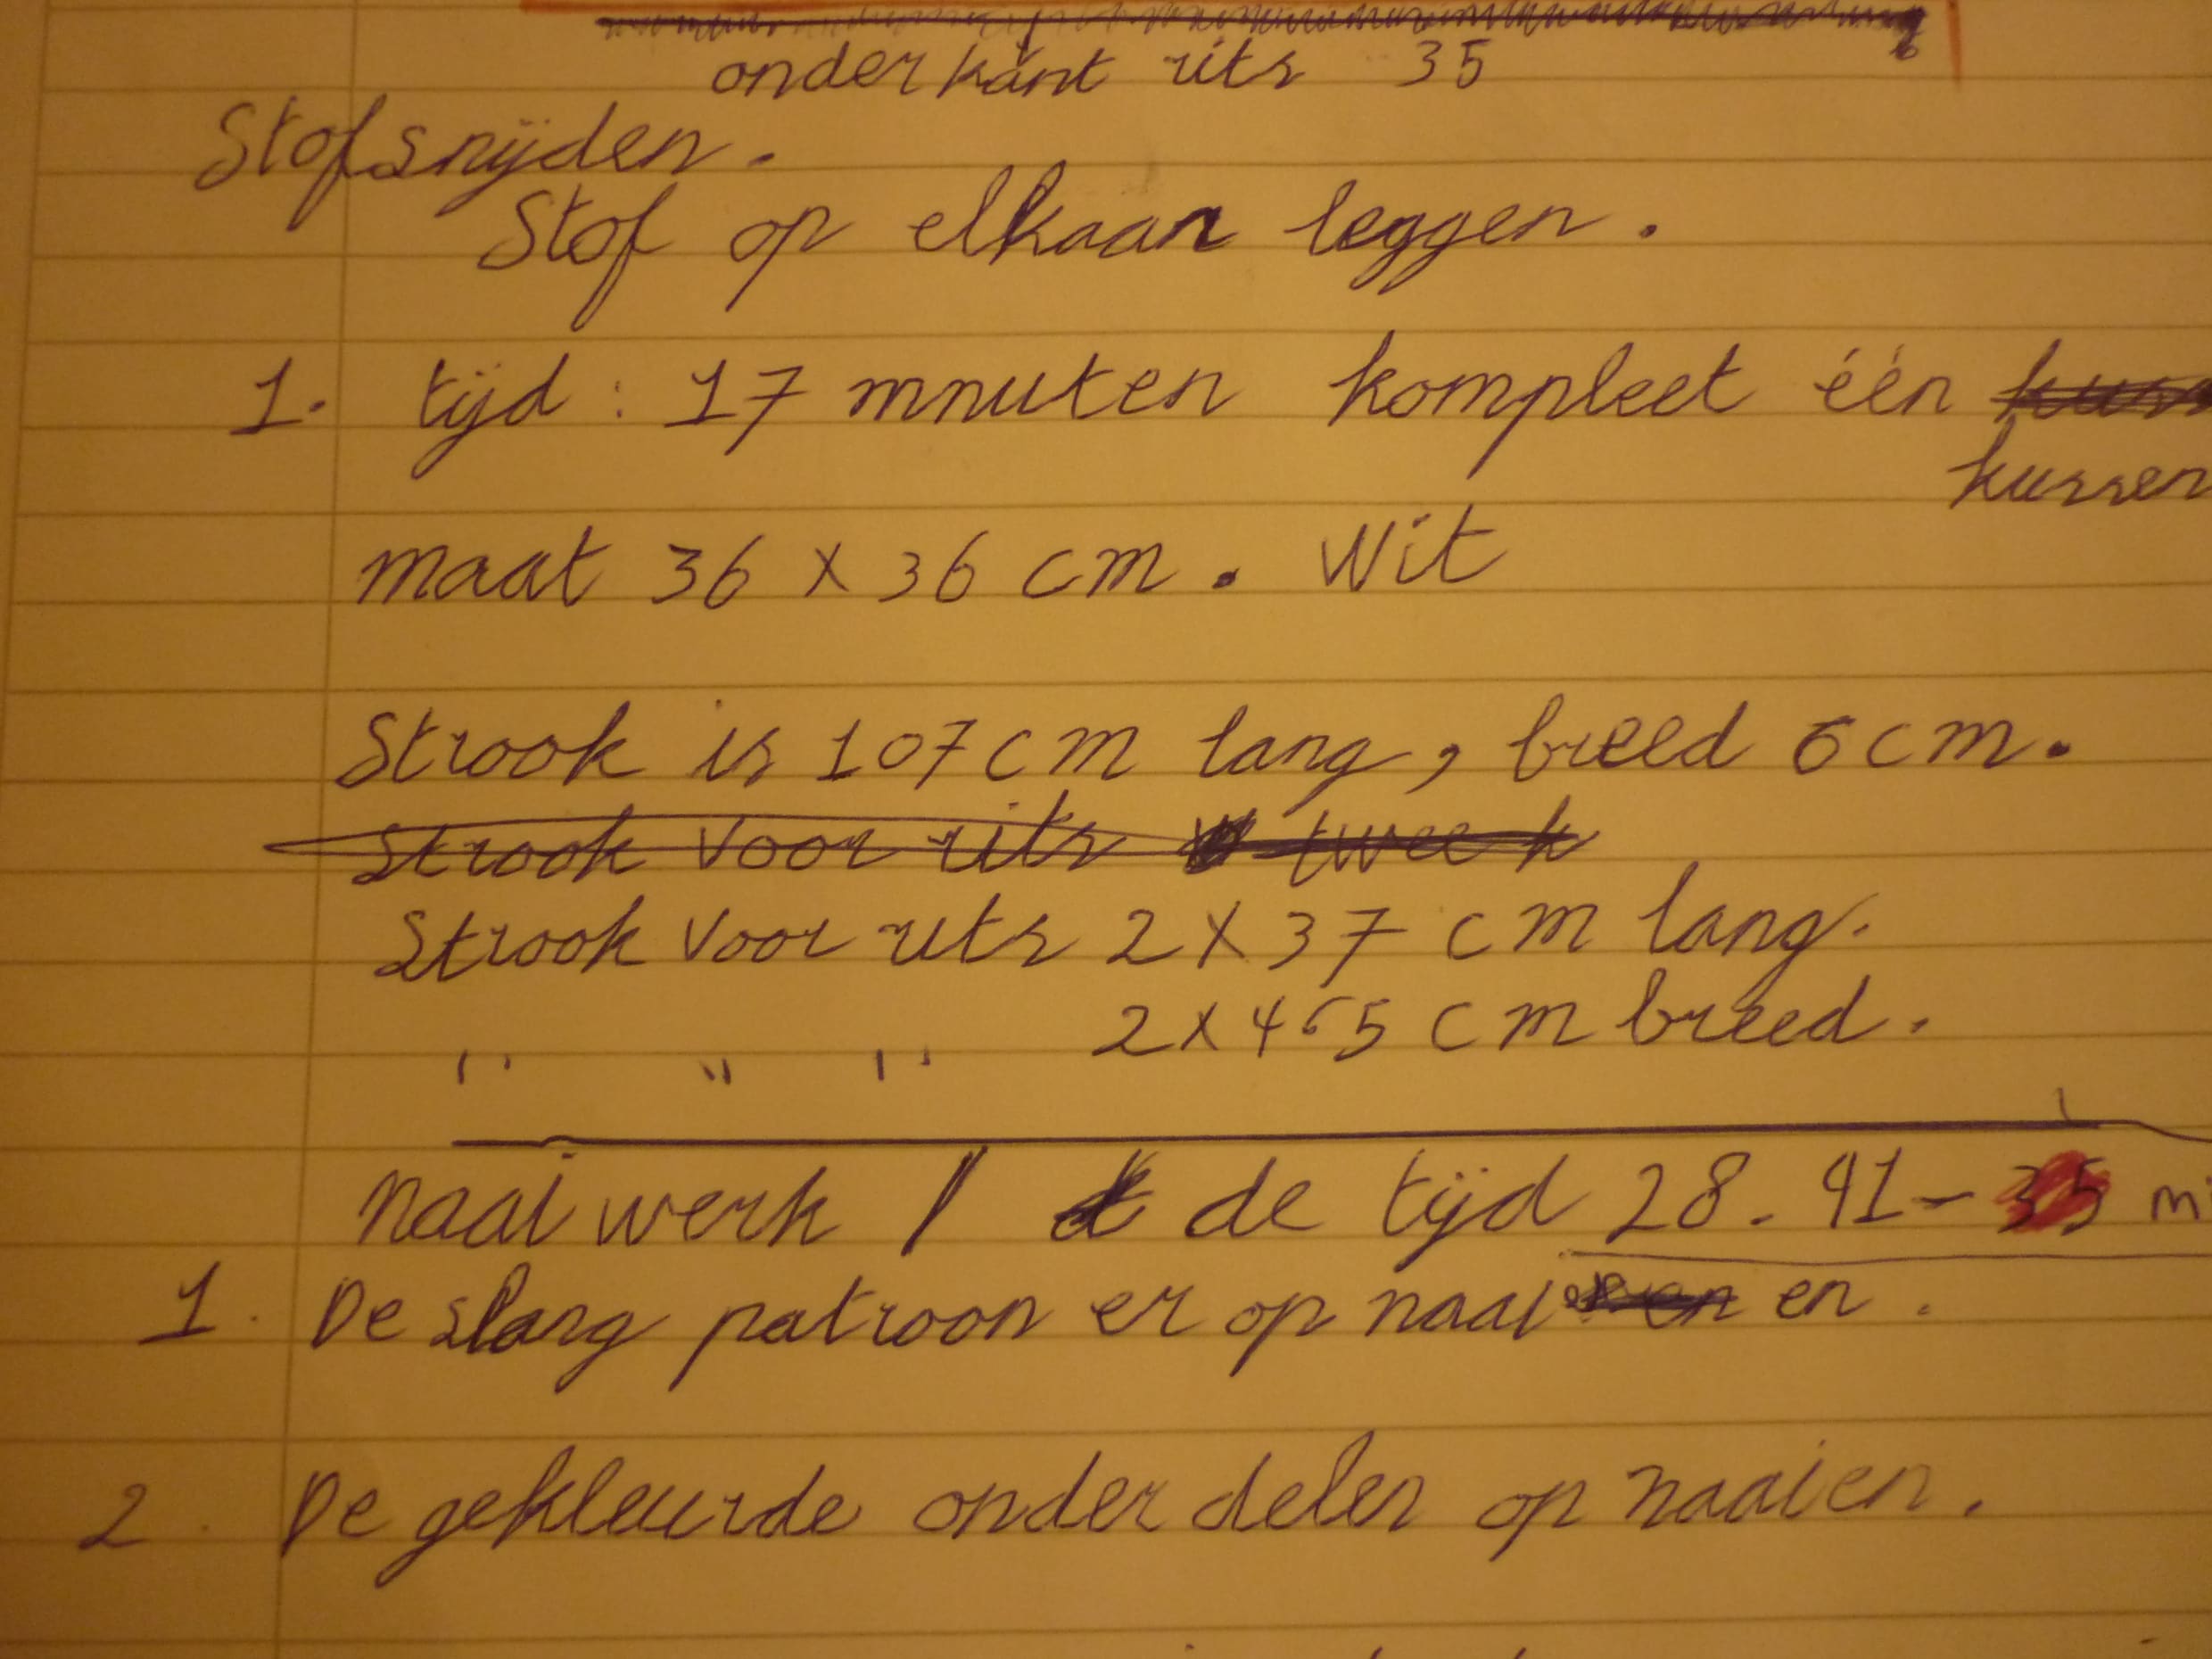 onderkant rits 35
Stofsnijden.
Stof op elkaar leggen.
1. tijd: 17 mnuten kompleet één
kussen
maat 36 x 36 cm. Wit
Strook is 107 cm lang, breed 6 cm.
Strook voor rits twee k
Strook voor rits 2 x 37 cm lang.
" " " 2 x 4,5 cm breed.
Naaiwerk / de tijd 28. 41 - 35 m
1. De slang patroon er op naai en.
2. De gekleurde onderdelen op naaien.